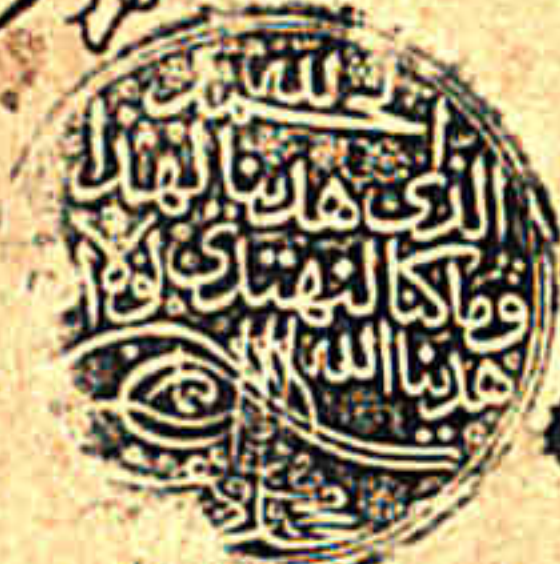 الحمد لله
الذى هدينا لهذا
وما كنا لنهتدى لولا ا
هدينا الله